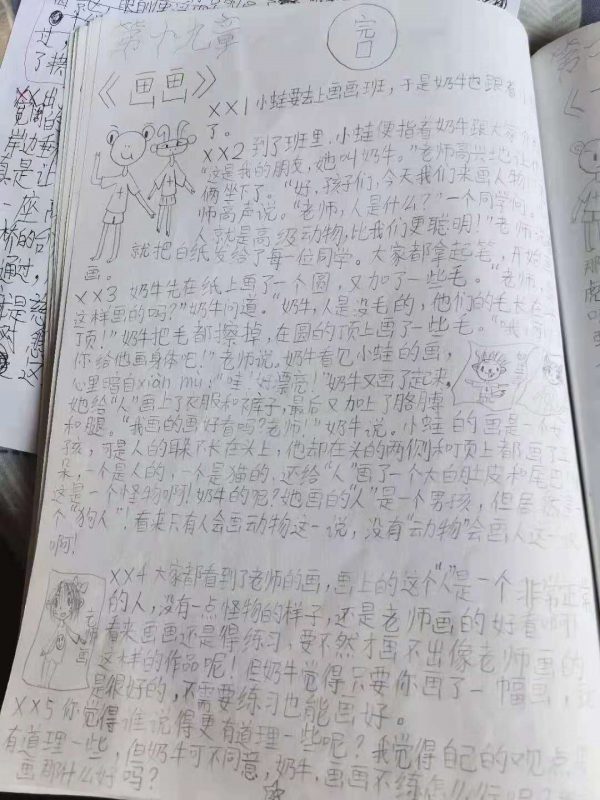 第十九章
完
《画画》
××1 小蛙要去上画画班，于是奶牛也跟着
了。
××2 到了班里，小蛙便指着奶牛跟大家
"这是我的朋友，她叫奶牛。"老师高兴地让
俩坐下了。"好，孩子们，今天我们来画人物！"
师高声说。"老师，人是什么？"一个同学问。
人就是高级动物，比我们更聪明！"老师说
就把白纸发给了每一位同学。大家都拿起笔，开始
画。
××3 奶牛先在纸上画了一个圆，又加了一些毛。"老师，
这样画的吗？"奶牛问道。"奶牛，人是没毛的，他们的毛长在
顶！"奶牛把毛都擦掉，在圆的顶上画了一些毛。
你给他画身体吧！"老师说。奶牛看见小蛙的画，
心里暗自xiàn mù："哇！好漂亮！"奶牛又画了起来，
她给"人"画上了衣服和裤子，最后又加上了胳膊
和腿。"我画的画好看吗？老师！"奶牛说。小蛙的画是一个
孩，可是人的耳朵不长在头上，他却在头的两侧和顶上都画了
朵，一个是人的，一个是猫的，还给"人"画了一个大白肚皮和尾巴
这是一个怪物啊！奶牛的呢？她画的"人"是一个男孩，但
个"狗人"！看来只有人会画动物这一说，没有"动物"会画人这一说
啊！
××4 大家都看到了老师的画，画上的这个"人"是一个非常正常
的人，没有一点怪物的样子，还是老师画的好看啊！
看来画画还是得练习，要不然才画不出像老师画的
这样的作品呢！但奶牛觉得只要你画了一幅画，
是很好的，不需要练习也能画好。
老师画
××5 你觉得谁说得更有道理一些呢？我觉得自己的观点
有道理一些，但奶牛可不同意，奶牛，画画不练怎
画那什么好吗？